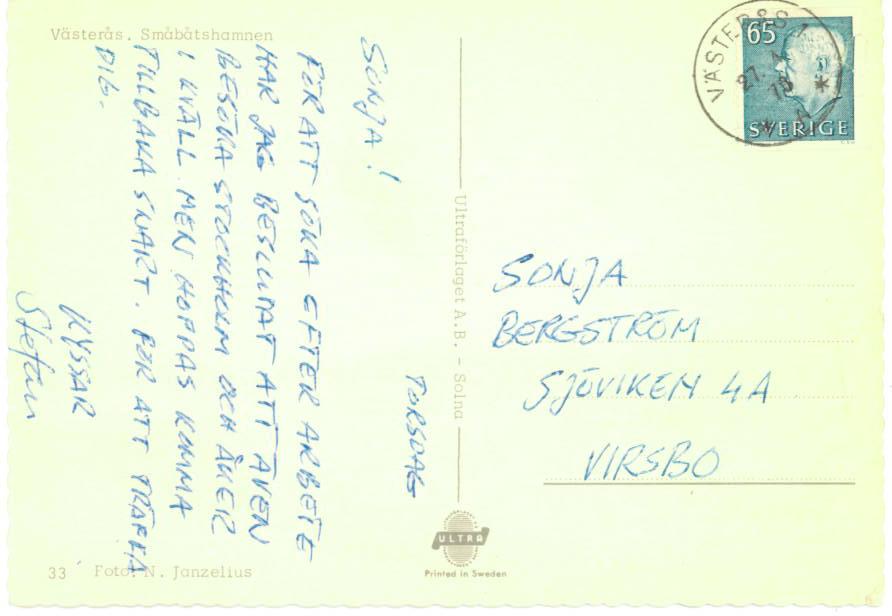 Västerås. Småbåtshamnen
TORSDAG
SONJA!
FÖR ATT SÖKA EFTER ARBETE
HAR JAG BESLUTAT ATT ÄVEN
BESÖKA STOCKHOLM OCH ÅKER
I KVÄLL. MEN HOPPAS KOMMA
TILLBAKA SNART. FÖR ATT TRÄFFA
DIG.
KYSSAR
Stefan
33 Foto: N. Janzelius
Ultraförlaget A.B. - Solna
ULTRA
Printed in Sweden
VÄSTERÅS 1
27. 1
A
65
SVERIGE
SONJA
BERGSTRÖM
SJÖVIKEN 4A
VIRSBO